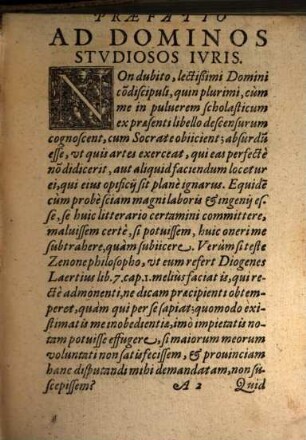 PRÆFATIO
AD DOMINOS
STVDIOSOS IVRIS.
NOn dubito, lectissimi Domini
cōdiscipuli, quin plurimi, cùm
me in puluerem scholasticum
ex præsenti libello descensurum
cognoscent, cum Socrate obiicient; absurdū
esse, vt quis artes exerceat, qui eas perfectè
nō didicerit, aut aliquid faciendum locetur
ei, qui eius opificij sit planè ignarus. Equidē
cum probè sciam magni laboris & ingenij es-
se, se huic litterario certamini committere,
maluissem certè, si potuissem, huic oneri me
subtrahere, quàm subiicere. Verùm si teste
Zenone philosopho, vt eum refert Diogenes
Laertius lib. 7. cap. 1. melius faciat is, qui re-
ctè admonenti, ne dicam præcipienti obtem-
peret, quàm qui per se sapiat; quomodo exi-
stimatis me inobedientiæ, imò impietatis no-
tam potuisse effugere, si maiorum meorum
voluntati non satisfecissem, & prouinciam
hanc disputandi mihi demandatam, non su-
scepissem?
A 2 Quid